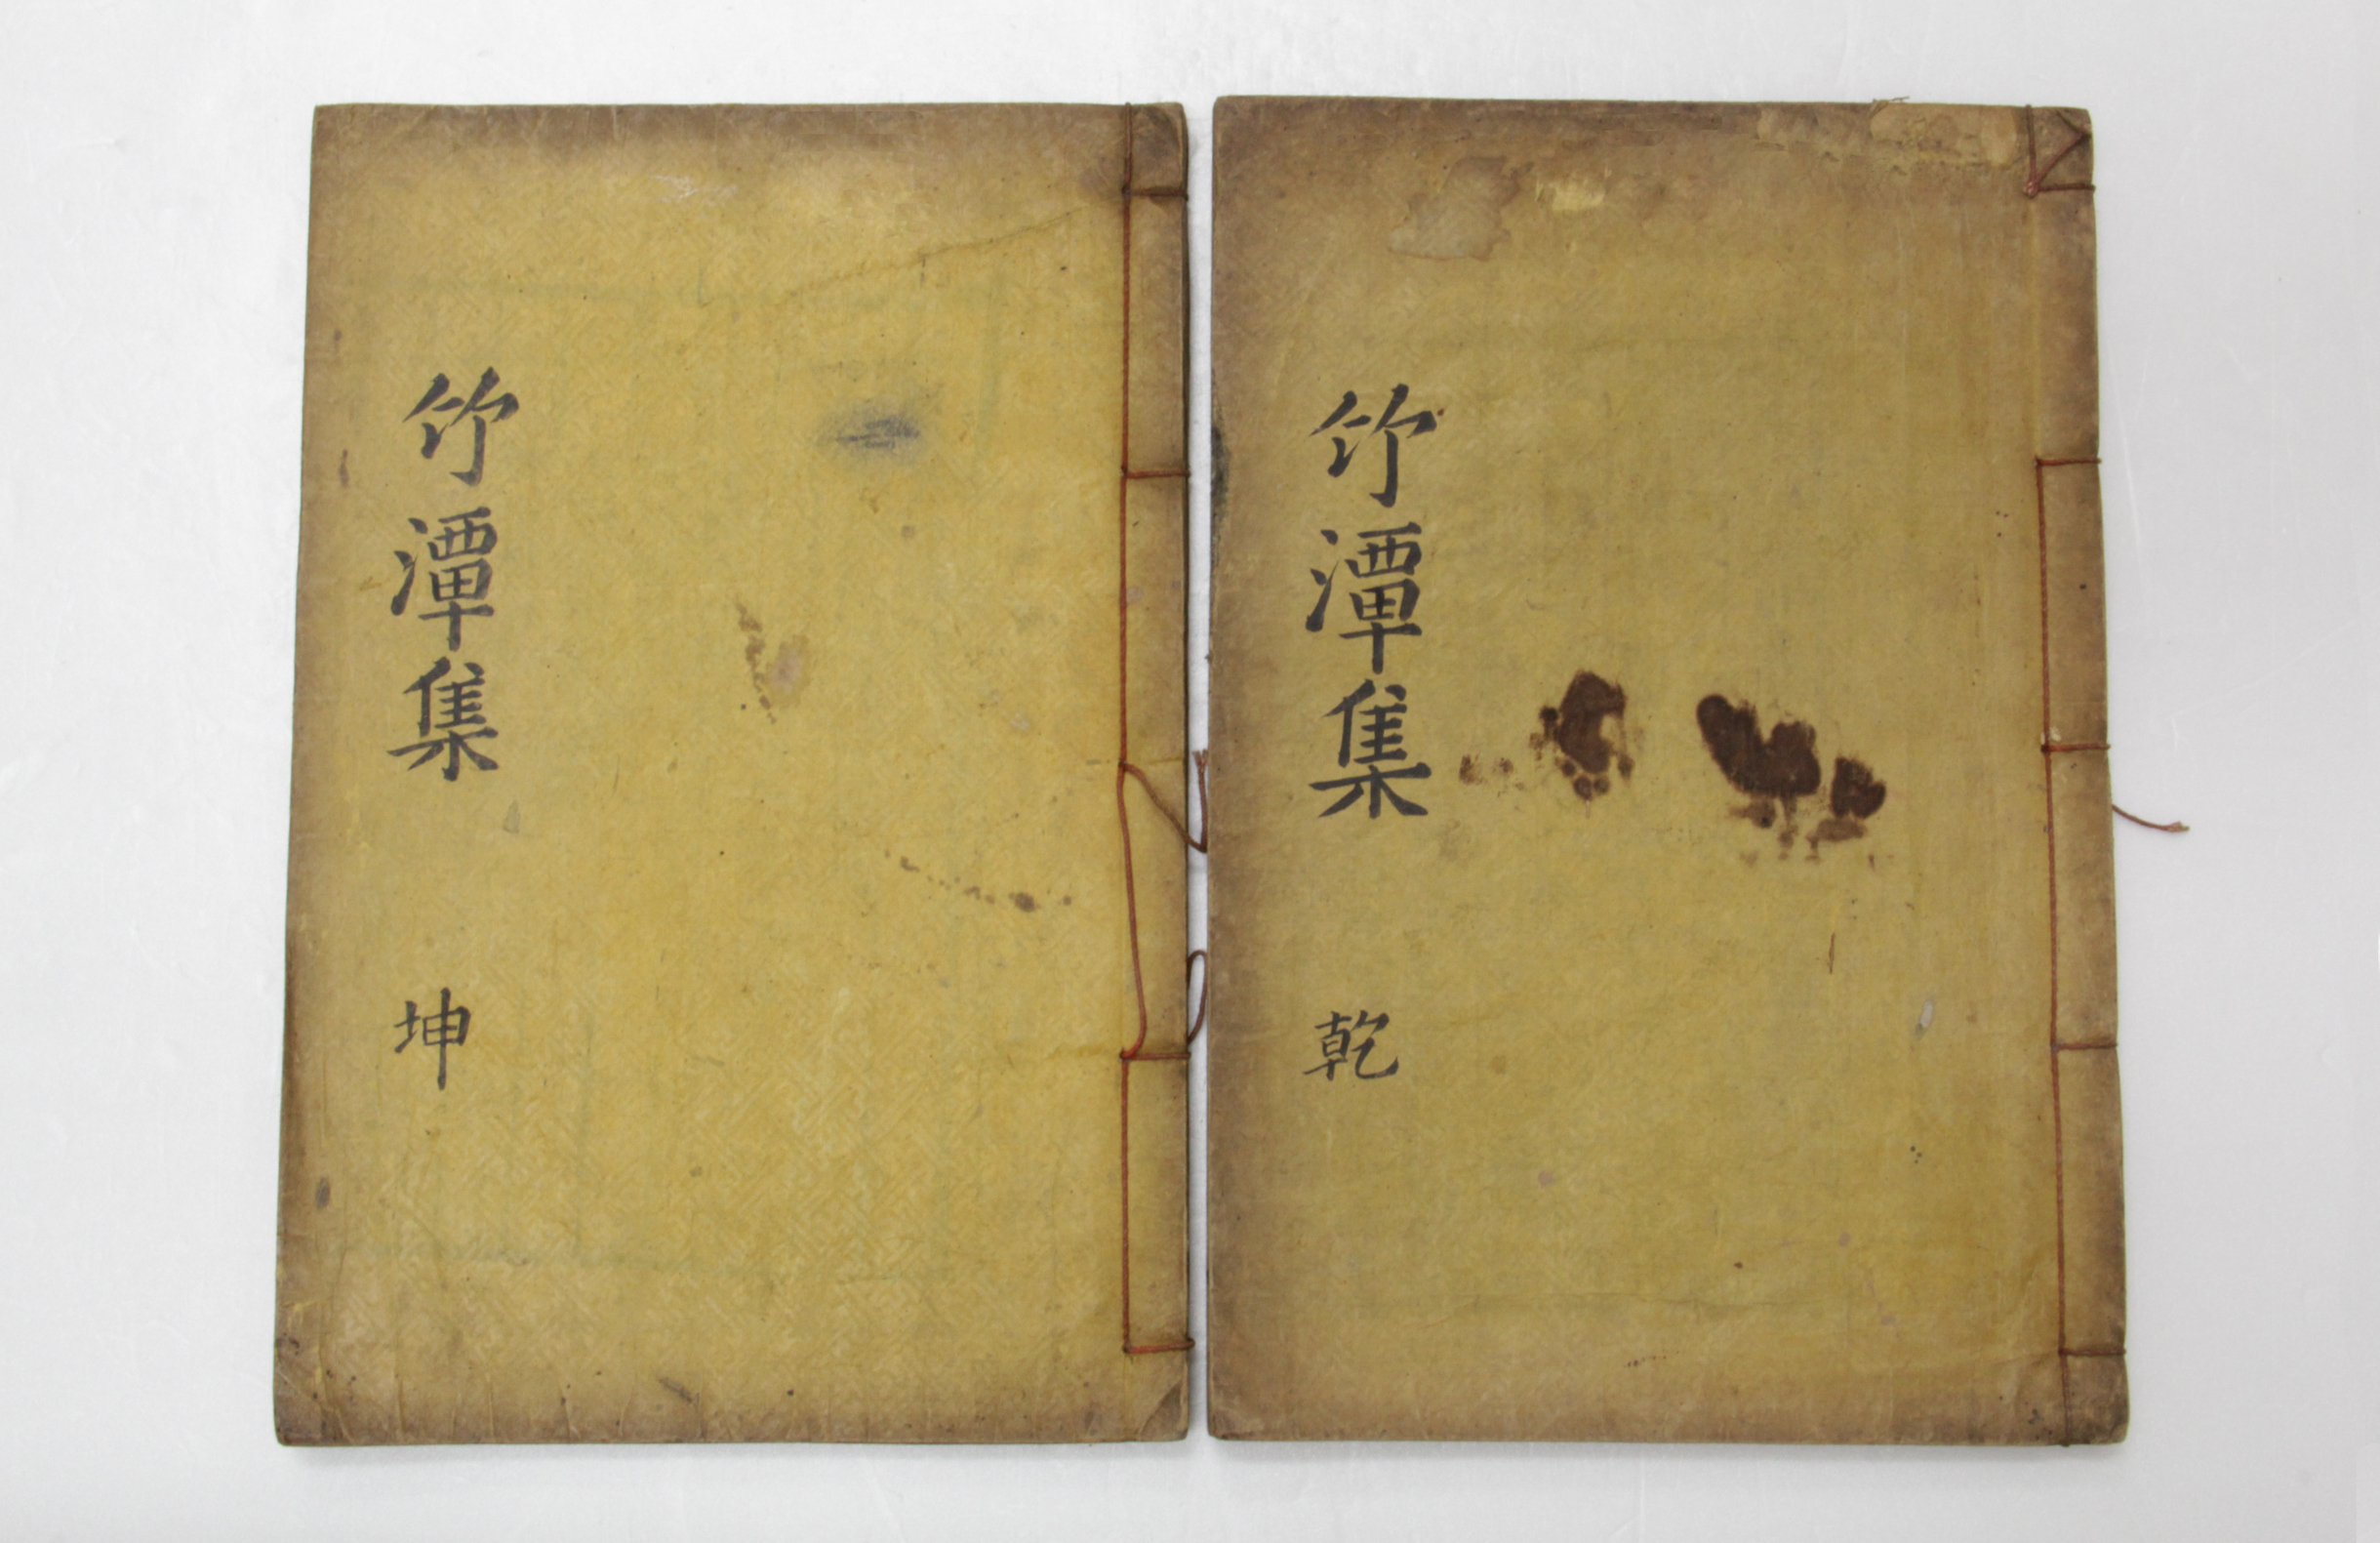 竹潭集
乾
竹潭集
坤